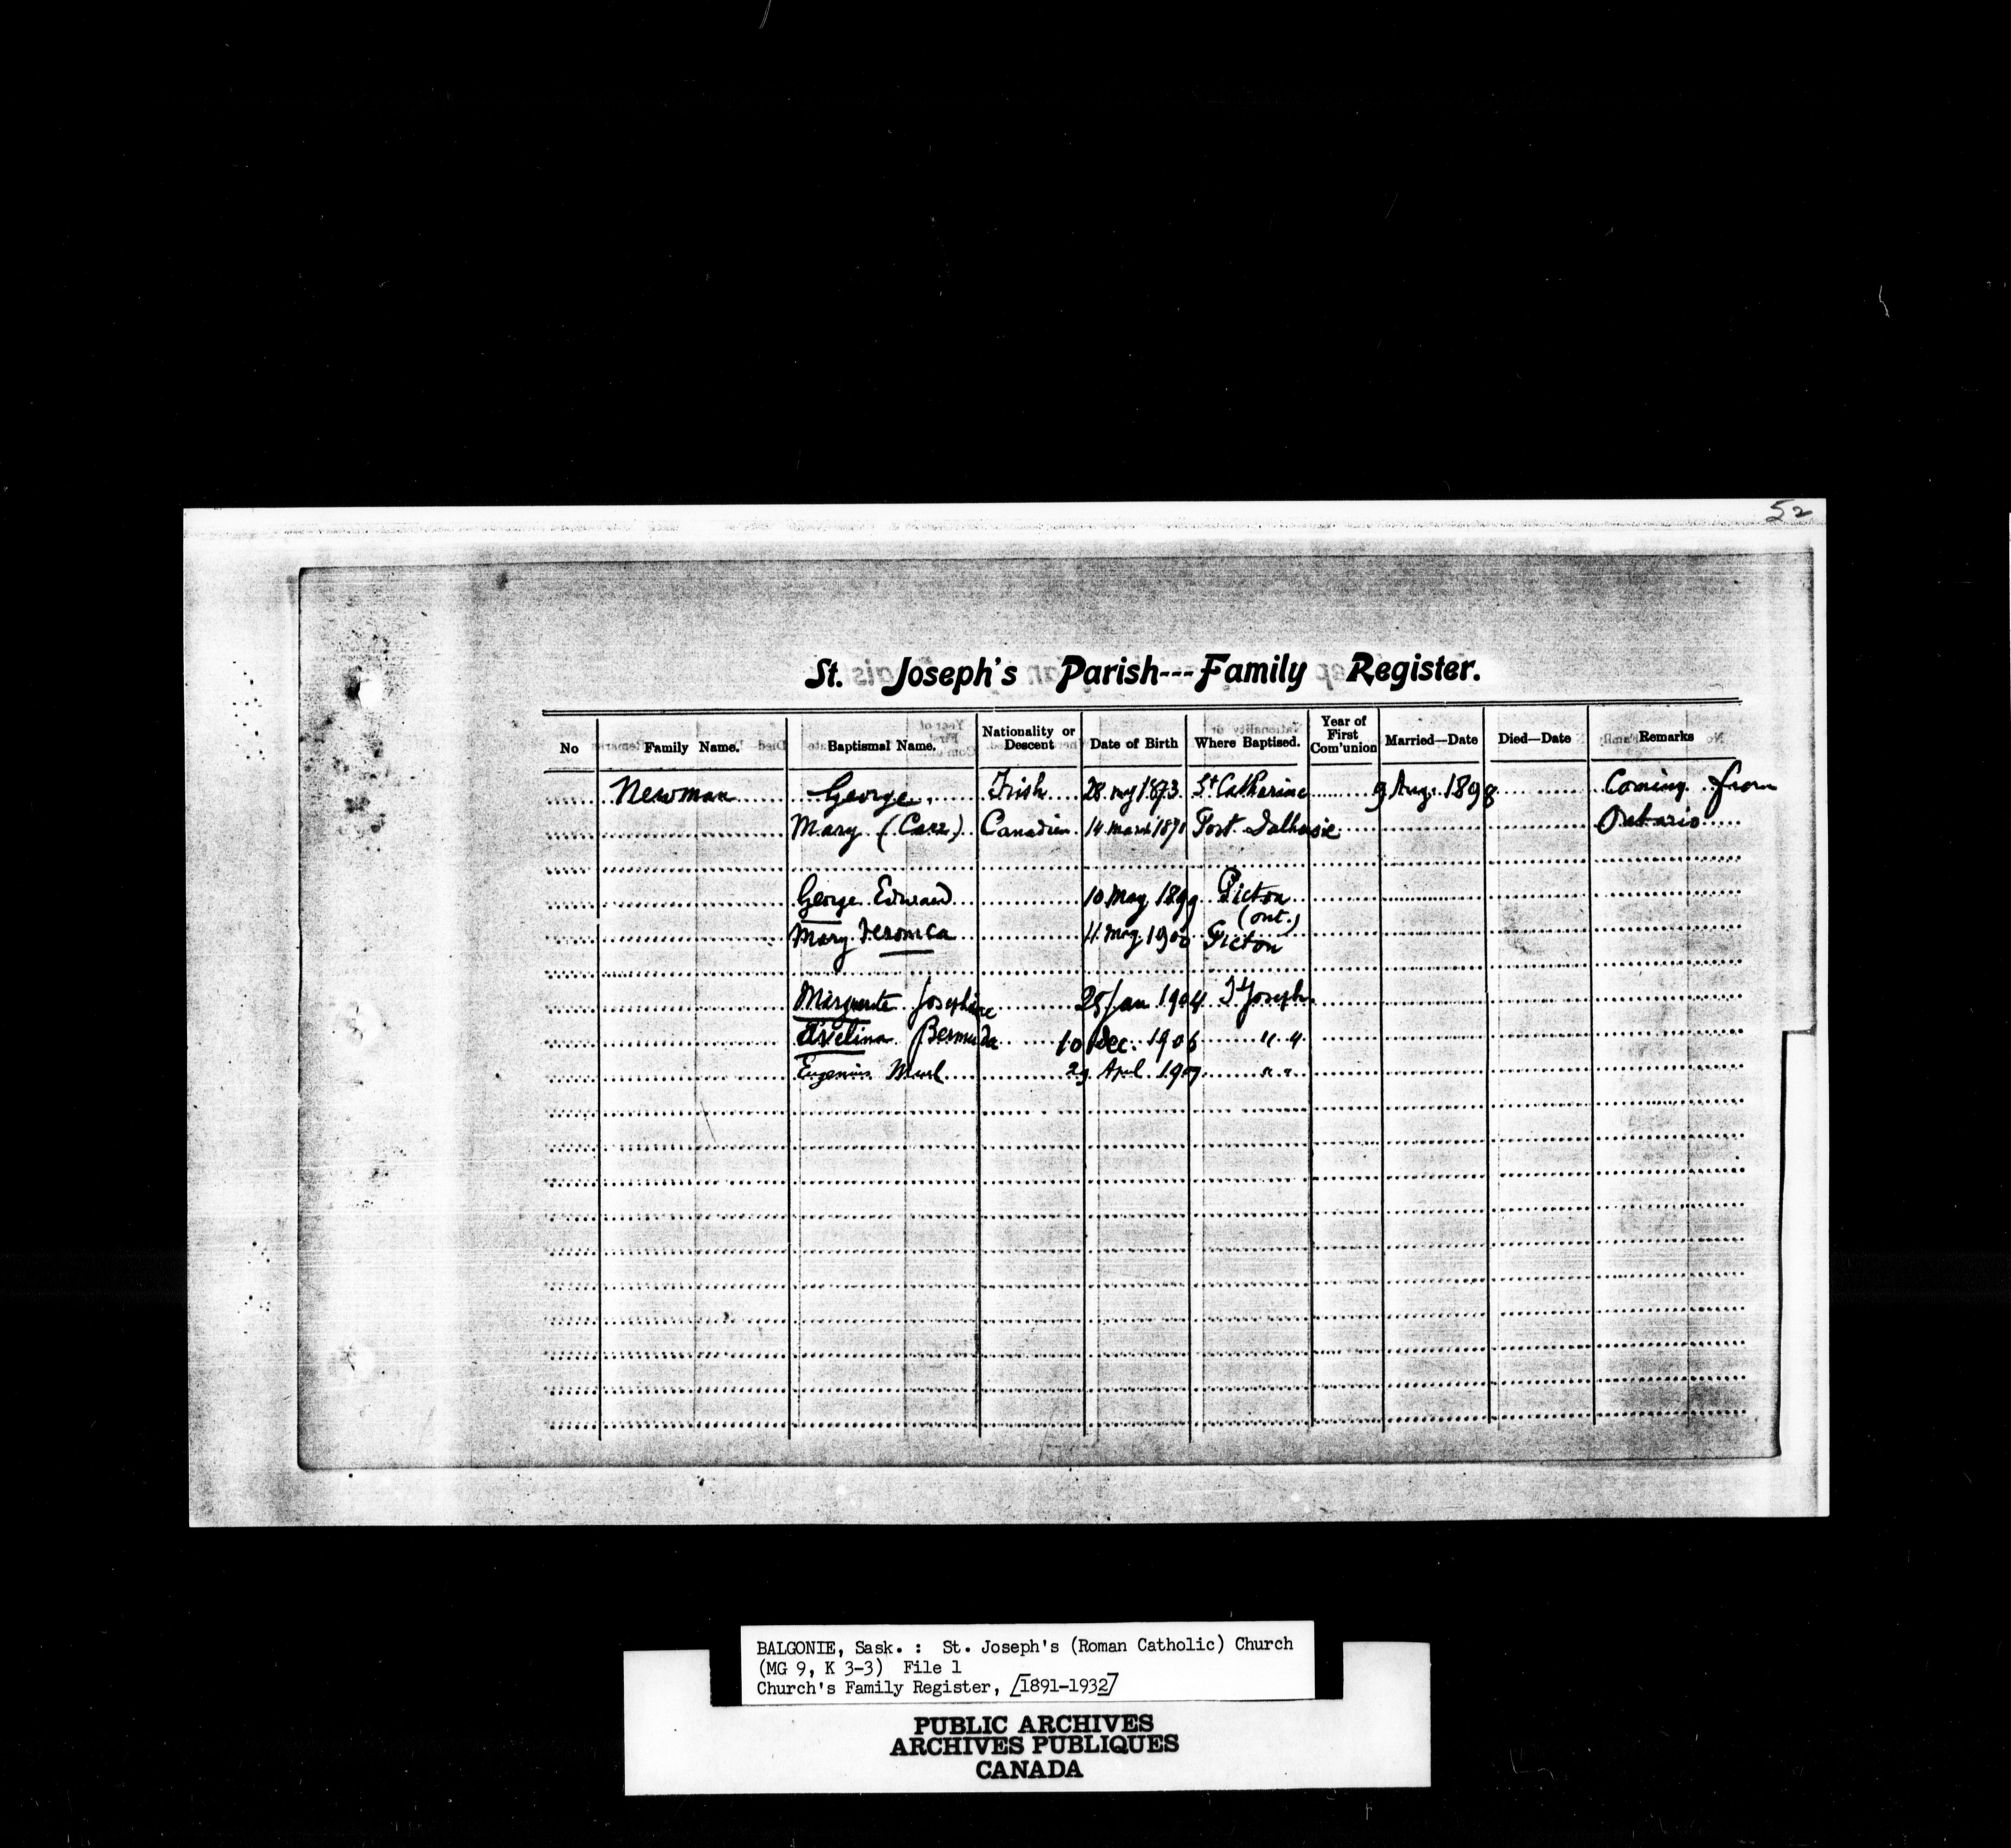 52
St. Joseph's Parish---Family Register.
No Family Name. Baptismal Name. Nationality or Descent Date of Birth Where Baptised. Year of First Com'union Married—Date Died—Date Remarks
Newman George Irish 28 1873 St Catharine 9 Aug. 1898 Coming from
Mary (Carr) Canadien 14 March Port Dalhousie Ontario
George Edward 10 May 1899 Picton
(ont.)
Mary Veronica 1900 Picton
Marguerite Josephine 25 Jan 1904 St Joseph
Bermuda 10 Dec. 1906 " "
Eugenius 29 April 1907 " "
BALGONIE, Sask. : St. Joseph's (Roman Catholic) Church
(MG 9, K 3-3) File 1
Church's Family Register, [1891-1932]
PUBLIC ARCHIVES
ARCHIVES PUBLIQUES
CANADA